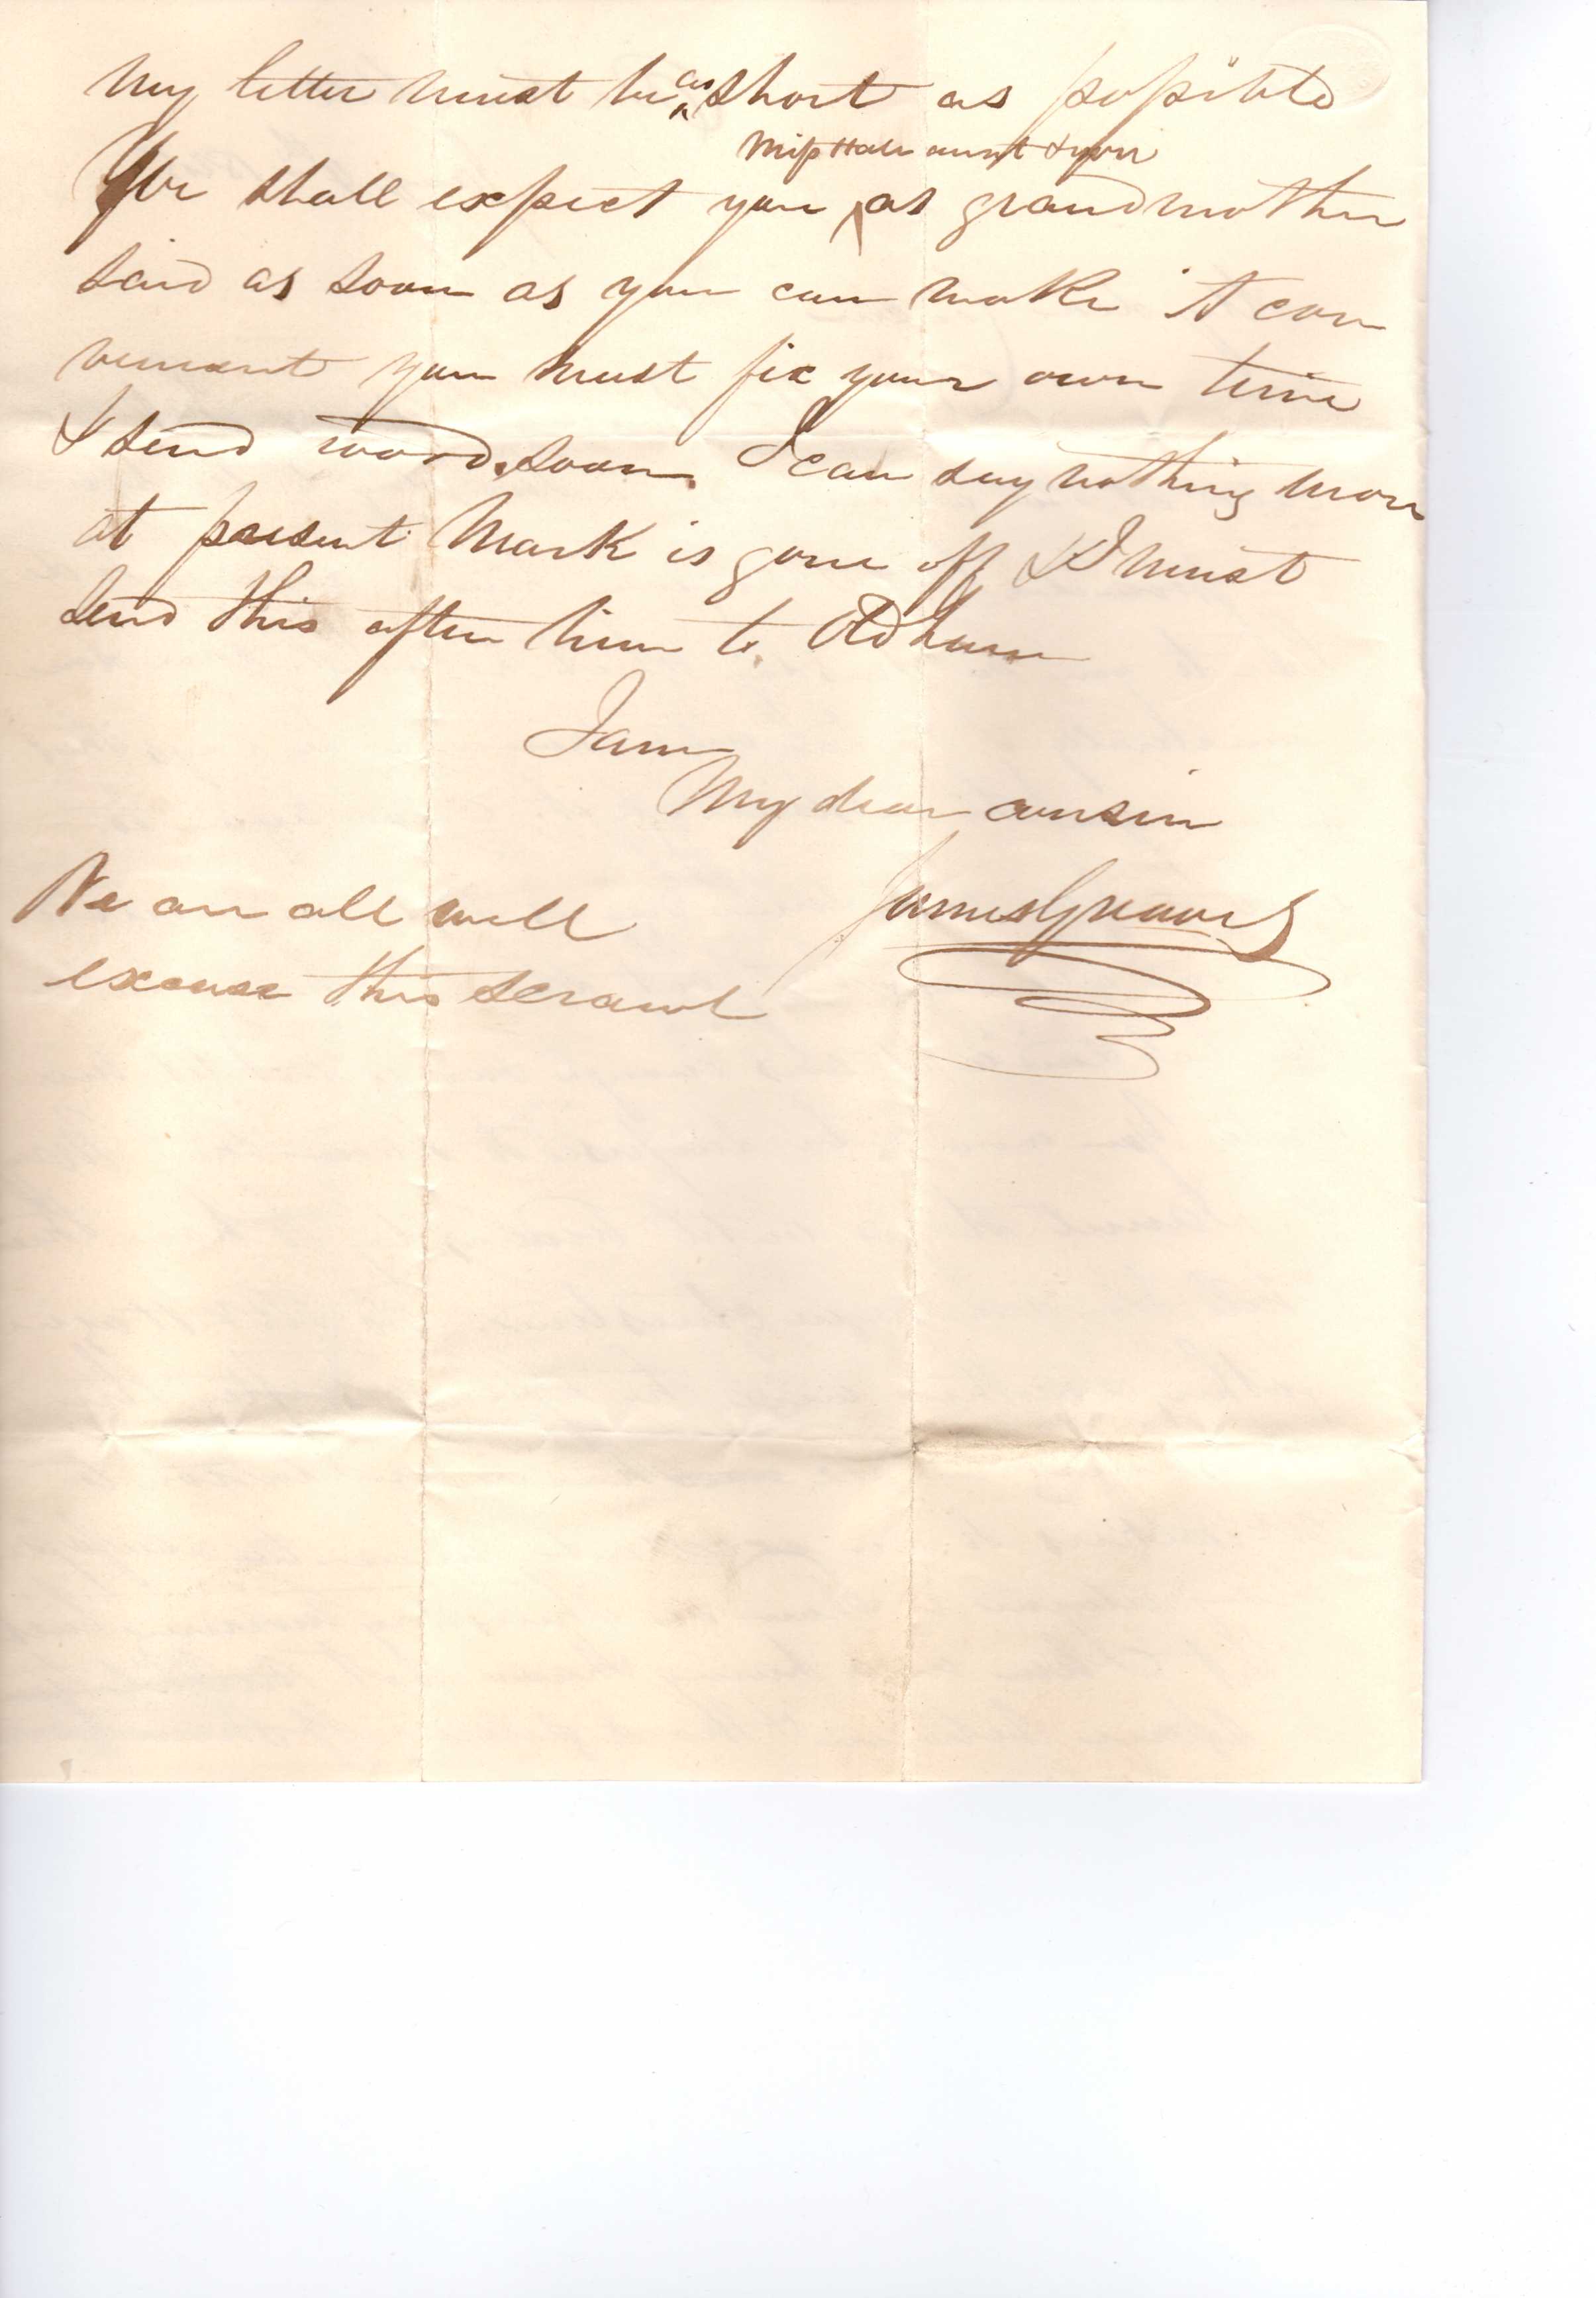 My letter must be as short as possible
Miss Hall aunt &
We shall expect you as grandmother
said as soon as you can make it con
venient you must fix your own time
& send word soon. I can say nothing more
at present Mark is gone off & I must
send this after him to Oldham
I am
My dear cousin
James Greaves
We are all well
excuse this scrawl